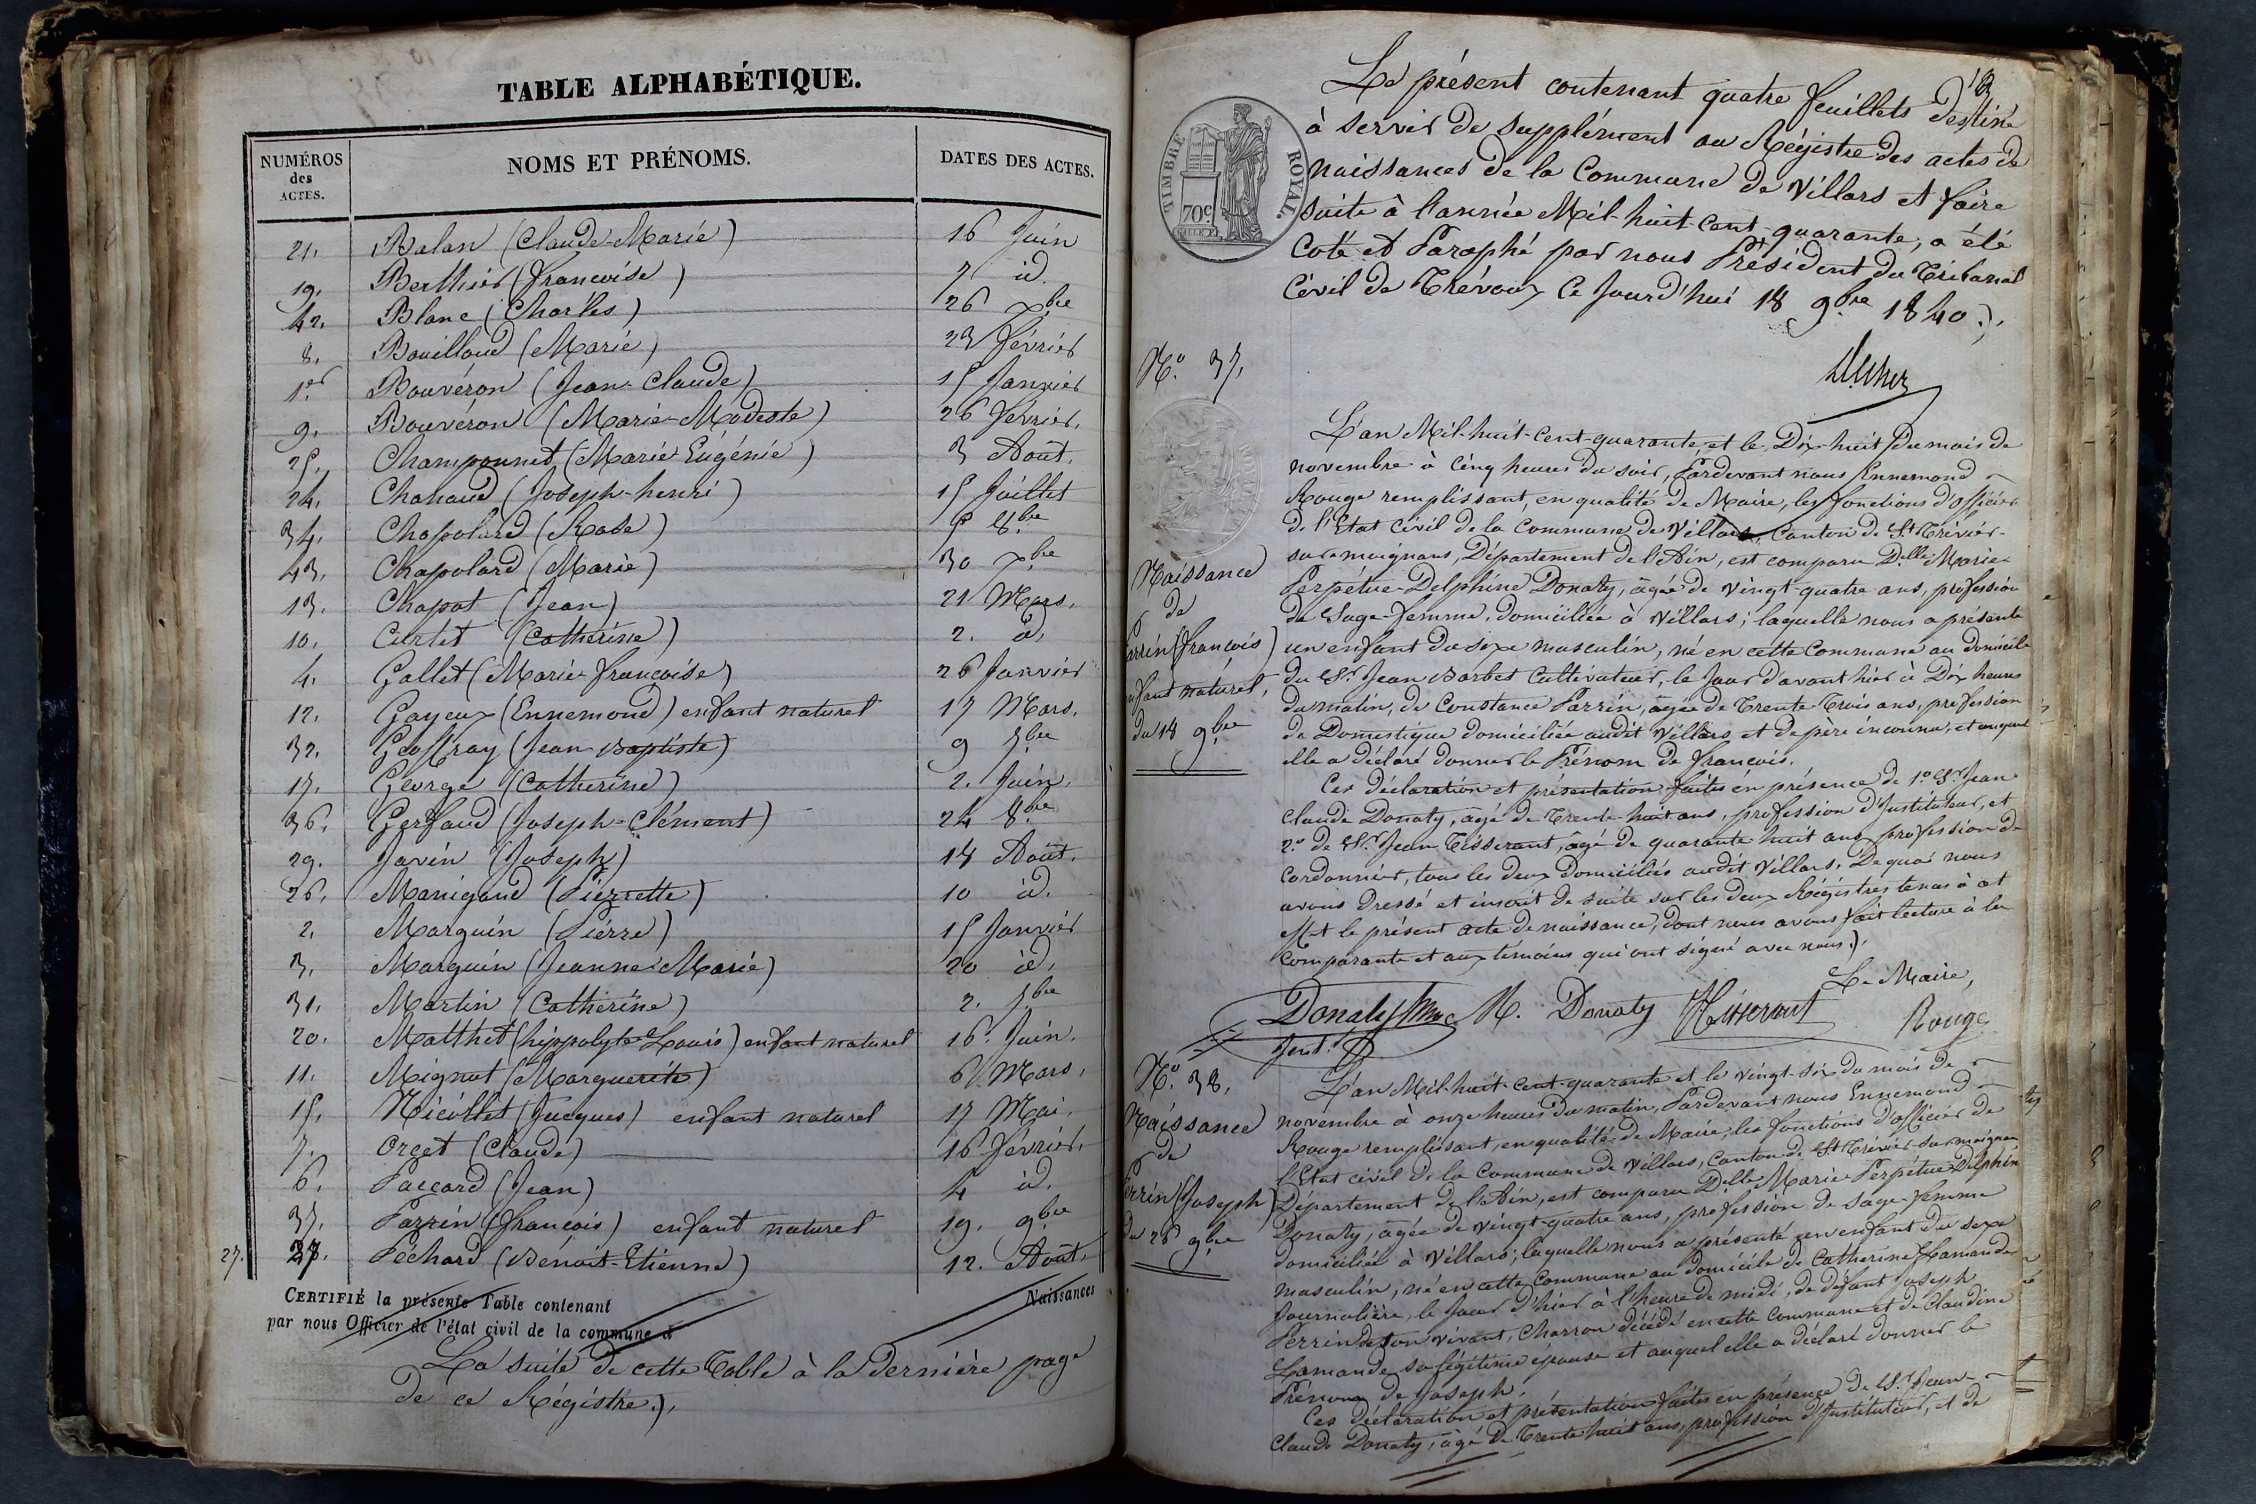 TABLE ALPHABÉTIQUE.
NUMÉROS des ACTES. NOMS ET PRÉNOMS. DATES DES ACTES.
21. Balan (Claude-Marie) 16 Juin
19. Berthier (francoise) 7 id.
42. Blanc (Charles) 26 Xbre
8. Bouilloud (Marie) 23 février
1er Bouvéron (Jean-Claude) 15 Janvier
9. Bouvéron (Marie-Modeste) 26 février.
25. Champonnet (Marie Eugénie) 3 Août.
24. Chanaud (Joseph-henri) 15 Juillet
34. Chapolard (Rose) 5 8bre
43. Chapolard (Marie) 30 Xbre
13. Chapot (Jean) 21 Mars.
10. Curlet (Catherine) 2. id.
4. Gallet (Marie francoise) 26 Janvier
12. Gayeux (Ennemond) enfant naturel 17 Mars.
32. Geoffray (Jean-Baptiste) 9 7bre
17. George (Catherine) 2. Juin.
36. Gerfaud (Joseph-Clément) 24 8bre
29. Javin (Joseph) 18 Août.
26. Manigand (Pierrette) 10 id.
2. Marguin (Pierre) 15 Janvier
3. Marguin (Jeanne Marie) 20 id.
31. Martin (Catherine) 2. 7bre
20. Matthet (hippolyte Louis) enfant naturel 16. Juin.
11. Mignat (Marguerite) 6 Mars.
15. Nicollet (Jacques) enfant naturel 17 Mai.
7. Orcet (Claude) 16 février.
6. Paccard (Jean) 4 id.
37. Parrin (francois) enfant naturel 19. 9bre
27. 27. Péchard (Bénoit-Etienne) 12. Août.
CERTIFIÉ la présente Table contenant Naissances
par nous Officier de l'état civil de la commune d
La suite de cette Table à la Dernière page
de ce Régistre.
Le présent contenant quatre feuillets Destiné
à servir de supplément au Régistre des actes de
naissances de la Commune de Villars et faire
suite à l'année Mil-huit-Cent-quarante, a été
Coté et Paraphé par nous Président du Tribunal
Civil de Trévoux Ce Jourd'hui 18 9bre 1840.
TIMBRE ROYAL.
70c
No. 37.
Naissance
de
Parrin (francois)
enfant naturel,
du 18 9bre
L'an Mil-huit-cent-quarante, et le Dix-huit du mois de
novembre à Cinq heures du soir, Pardevant nous Ennemond
Rouge remplissant, en qualité de Maire, les fonctions d'officier
de l'Etat civil de la Commune de Villars, Canton de St Trivier-
sur-moignans, Département de l'Ain, est comparu Delle Marie-
Perpétue-Delphine Donaty, agée de vingt-quatre ans, profession
de Sage-femme, domiciliée à Villars; laquelle nous a présenté
un enfant du sexe masculin, né en cette Commune au domicile
du Sr Jean Barbet Cultivateur, le Jour d'avant hier à Dix heures
du matin, de Constance Parrin, agée de Trente-Trois ans, profession
de Domestique domiciliée audit Villars et de père inconnu, et auquel
elle a déclaré donner le Prénom de francois.
Ces déclaration et présentation faites en présence de 1o Sr Jean
Claude Donaty, agé de Trente-huit ans, profession d'Instituteur, et
2o de Sr Jean Tisserant, âgé de quarante huit ans profession de
Cordonnier, tous les deux domiciliés audit Villars. De quoi nous
avons dressé et inscrit de suite sur les deux Régistres tenus à cet
effet le présent acte de naissance, dont nous avons fait lecture à la
Comparante et aux témoins qui ont signé avec nous.
Le Maire,
Donaty M. Donaty Tisserant Rouge
No. 38.
Naissance
de
Perrin (Joseph)
du 26 9bre
L'an Mil-huit-cent-quarante et le vingt-six du mois de
novembre à onze heures du matin, Pardevant nous Ennemond
Rouge remplissant, en qualité de Maire, les fonctions d'officier de
l'Etat civil de la Commune de Villars, Canton de St Trivier-sur-moignans
Département de l'Ain, est comparu Delle Marie Perpétue Delphine
Donaty, agée de vingt-quatre ans, profession de sage-femme
domiciliée à Villars; laquelle nous a présenté un enfant du sexe
masculin, né en cette Commune au domicile de Catherine Lamande
Journalière, le Jour d'hier à l'heure de midi, de défunt Joseph
Perrin de son vivant, Charron décédé en cette commune et de Claudine
Lamande sa légitime épouse et auquel elle a déclaré donner le
Prénom de Joseph.
Ces déclaration et présentation faites en présence de Sr Jean
Claude Donaty, agé de Trente huit ans, profession d'Instituteur, et de